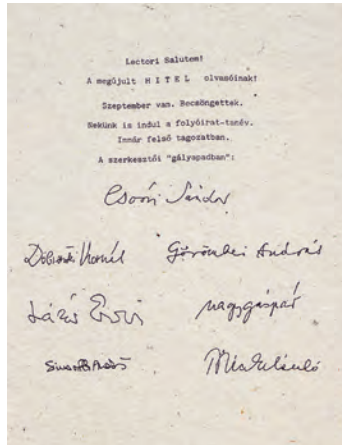 Lectori Salutem!
A megújult H I T E L olvasóinak!
Szeptember van. Becsöngettek.
Nekünk is indul a folyóirat-tanév.
Immár felső tagozatban.
A szerkesztői "gályapadban":
Csoóri Sándor
Döbrentei Kornél Görömbei András
Lázár Ervin Nagy Gáspár